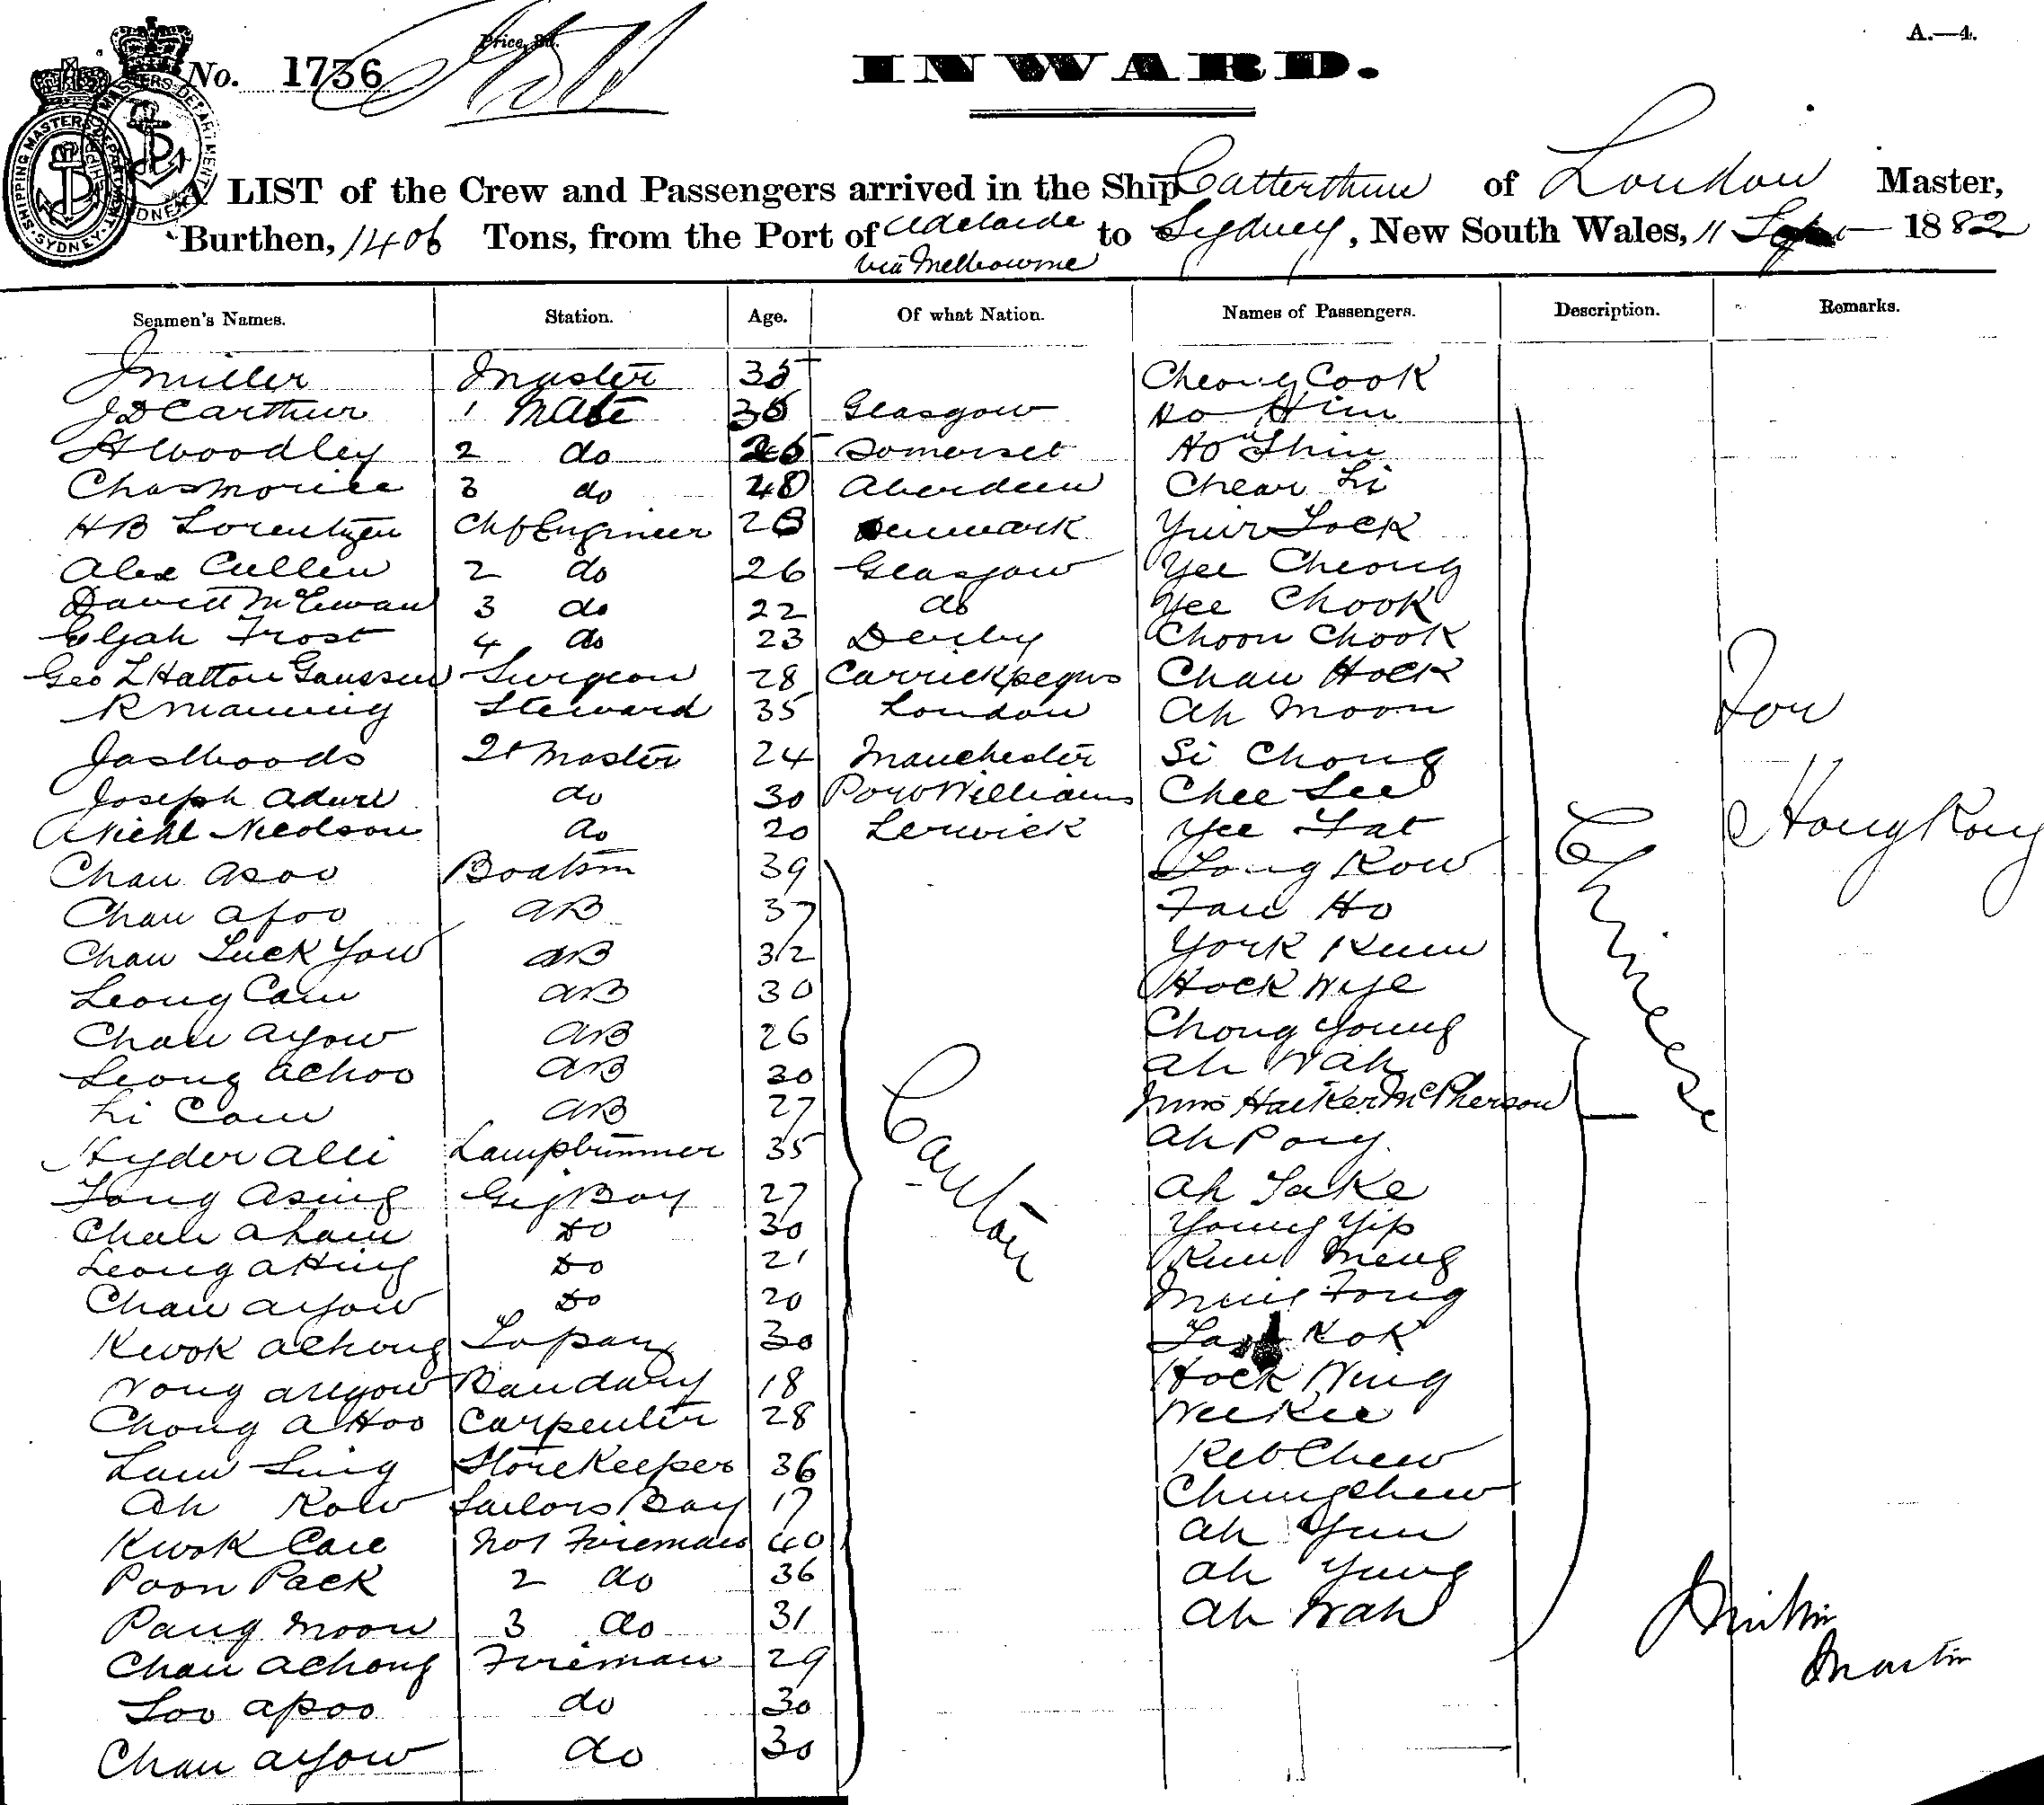 A.—4.
Price, 3d.
No. 1736
INWARD.
SHIPPING MASTERS DEPARTMENT SYDNEY
A LIST of the Crew and Passengers arrived in the Ship Catterthun of London Master,
Burthen, 1406 Tons, from the Port of Adelaide via Melbourne to Sydney, New South Wales, 11 Sept 1882
Seamen's Names. Station. Age. Of what Nation. Names of Passengers. Description. Remarks.
J Miller Master 35 Cheong Cook
J D Carthur 1 Mate 36 Glasgow Ho Him
H Woodley 2 do Somerset Ho Shin
Chas Morice 3 do 28 Aberdeen Chear Li
H B Lorentzen Chf Engineer 28 Denmark Yuir Lock
Alex Cullen 2 do 26 Glasgow Yee Cheong
David McEwan 3 do 22 do Yee Chook
Elijah Frost 4 do 23 Derby Choon Chook
Geo L Hatton Gaussen Surgeon 28 Carrickfegus Chan Hock
R Manning Steward 35 London Ah Moon
Jas Woods Qt Master 24 Manchester Si Chong
Joseph do 30 Port Williams Chee See
Nichl Nicolson do 20 Lerwick Yee Fat
Chan Asoo Boatsn 39 Long Kow
Chan Afoo AB 37 Fan Ho
Chan Luck Yow AB 32 York Kum
Leong Cam AB 30 Hock Wye
Chan Ayow AB 26 Chong Young
Leong Achoo AB 30 Ah Wah
Li Cam AB 27 Harker McPherson
Hyder Alli Lamptrimmer 35 Ah Pong
Tong Asing Gig Boy 27 Ah Take
Chan Aham Do 30 Young Yip
Leong AHing Do 21 Kum Meng
Chan Ayow Do 20 Ming Fong
Kwok Achong Topaz 30 Kok
Vong Allyow Bandary 18 Hock Wing
Chong AHoo Carpenter 28 Wee Kee
Lam Sing StoreKeeper 36 Keb Chew
Ah Kow Sailors Boy 17 Chung Chew
Kwok Care No1 Fireman 40 Ah Yun
Poon Pack 2 do 36 Ah Yung
Pang Moon 3 do 31 Ah Wah
Chan Achong Fireman 29
Loo Apoo do 30
Chan Ayow do 30
Canton
Chinese
For
Hong Kong
J Miller
Master